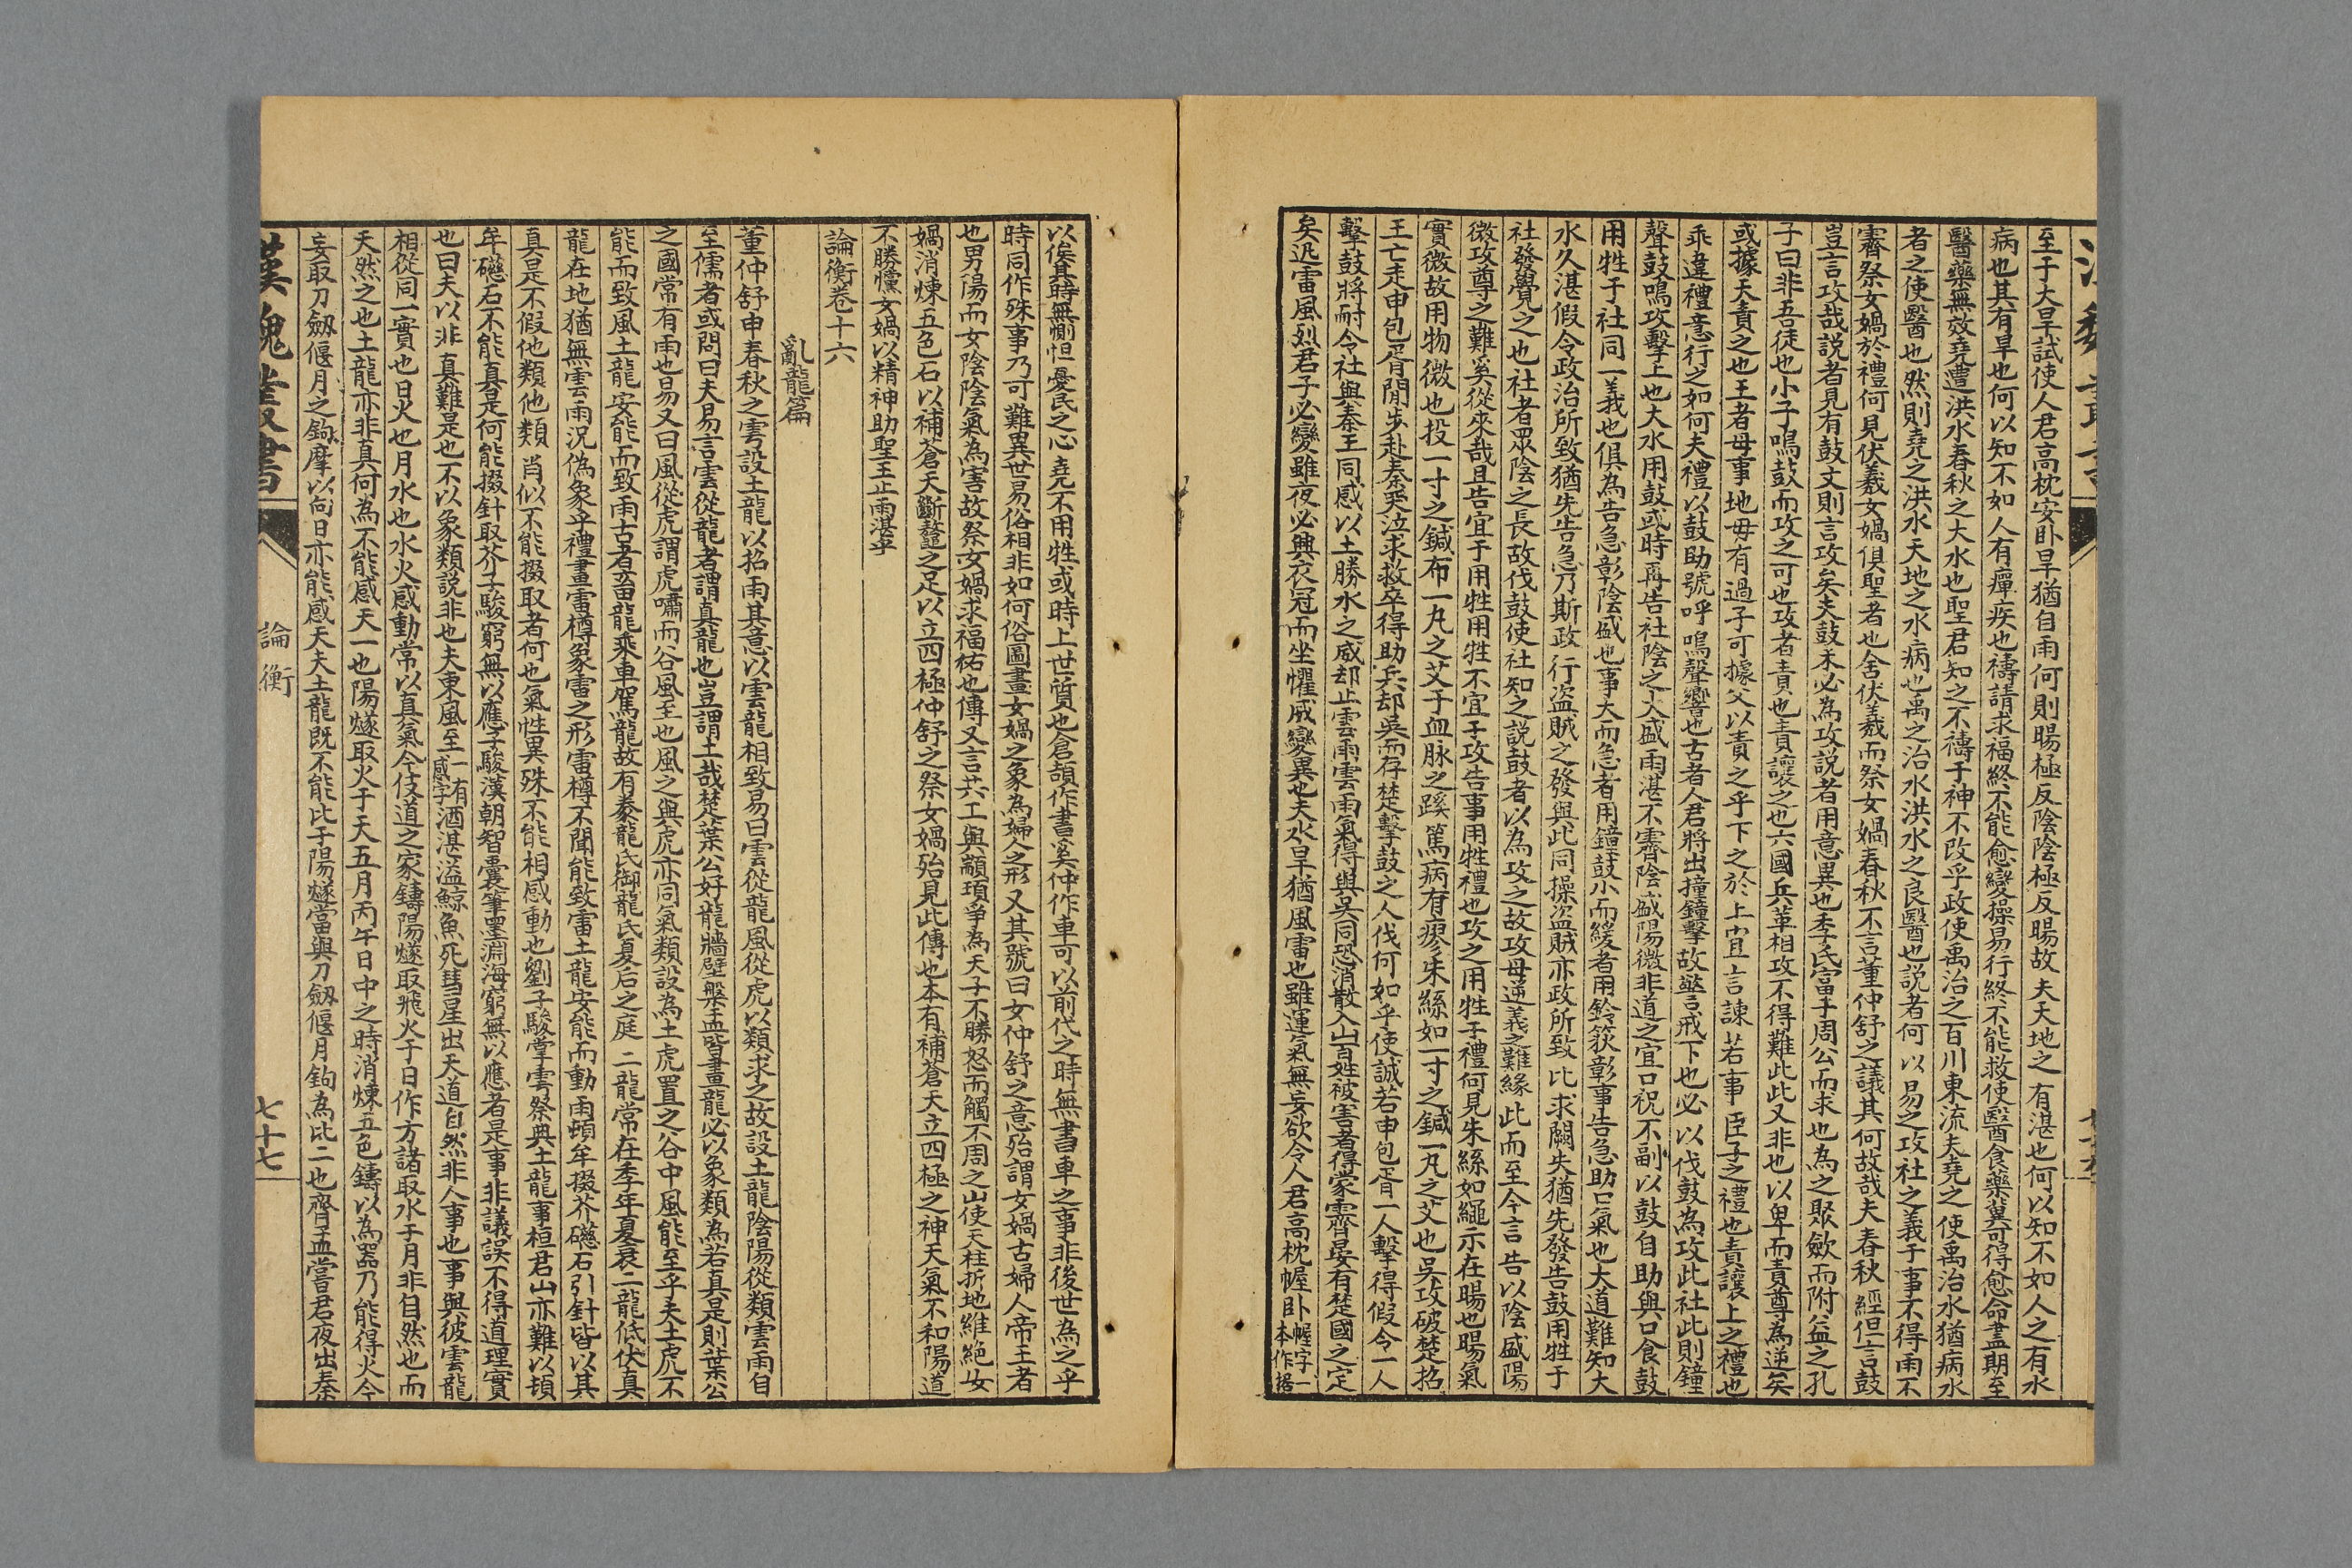 至于大旱試使人君高枕安卧旱猶自雨何則暘極反陰陰極反暘故夫天地之有湛也何以知不如人之有水
病也其有旱也何以知不如人有癉疾也禱請求福終不能愈變操易行終不能救使醫食藥冀可得愈命盡期至
醫藥無效堯遭洪水春秋之大水也聖君知之不禱于神不改乎政使禹治之百川東流夫堯之使禹治水猶病水
者之使醫也然則堯之洪水天地之水病也禹之治水洪水之良醫也説者何以易之攻社之義于事不得雨不
霽祭女媧於禮何見伏羲女媧俱聖者也舍伏羲而祭女媧春秋不言董仲舒之議其何故哉夫春秋經但言鼓
豈言攻哉説者見有鼓文則言攻矣夫鼓未必為攻説者用意異也季氏富于周公而求也為之聚歛而附益之孔
子曰非吾徒也小子鳴鼓而攻之可也攻者責也責讓之也六國兵革相攻不得難此此又非也以卑而責尊為逆矣
或據天責之也王者母事地母有過子可據父以責之乎下之於上宜言諫若事臣子之禮也責讓上之禮也
乖違禮意行之如何夫禮以鼓助號呼鳴聲響也古者人君將出撞鐘擊故警戒下也必以伐鼓為攻此社此則鐘
聲鼓鳴攻擊上也大水用鼓或時再告社陰之太盛雨湛不霽陰盛陽微非道之宜口祝不副以鼓自助與日食鼓
用牲于社同一義也俱為告急彰陰盛也事大而急者用鐘鼓小而緩者用鈴篍彰事告急助口氣也大道難知大
水久湛假令政治所致猶先告急乃斯政行盗賊之發與此同操盗賊亦政所致比求闕失猶先發告鼓用牲于
社發覺之也社者眾陰之長故伐鼓使社知之説鼓者以為攻之故攻母逆義之難緣此而至今言告以陰盛陽
微攻尊之難奚從來哉且告宜于用牲用牲不宜于攻告事用牲禮也攻之用牲于禮何見朱絲如繩示在暘也暘氣
實微故用物微也投一寸之鍼布一丸之艾于血脉之蹊篤病有瘳朱絲如一寸之鍼一丸之艾也吳攻破楚招
王亡走申包胥閒步赴秦哭泣求救卒得助兵却吳而存楚擊鼓之人伐何如乎使誠若申包胥一人擊得假令一人
擊鼓將耐令社與秦王同感以土勝水之威却止雲雨雲雨氣得與吳同恐消散入山百姓被害者得蒙霽晏有楚國之定
矣迅雷風烈君子必變雖夜必興衣冠而坐懼威變異也夫水旱猶風雷也雖運氣無妄欲令人君高枕幄卧幄字一本作据
以俟其時無惻怛憂民之心堯不用牲或時上世質也倉頡作書奚仲作車可以前代之時無書車之事非後世為之乎
時同作殊事乃可難異世易俗相非如何俗圖畫女媧之象為婦人之形又其號曰女仲舒之意殆謂女媧古婦人帝王者
也男陽而女陰陰氣為害故祭女媧求福祐也傳又言共工與顓頊爭為天子不勝怒而觸不周之山使天柱折地維絶女
媧消煉五色石以補蒼天斷鼇之足以立四極仲舒之祭女媧殆見此傳也本有補蒼天立四極之神天氣不和陽道
不勝儻女媧以精神助聖王止雨湛乎
論衡卷十六
亂龍篇
董仲舒申春秋之雩設土龍以招雨其意以雲龍相致易曰雲從龍風從虎以類求之故設土龍陰陽從類雲雨自
至儒者或問曰夫易言雲從龍者謂真龍也豈謂土哉楚葉公好龍牆壁槃盂皆畫龍必以象類為若真是則葉公
之國常有雨也易又曰風從虎謂虎嘯而谷風至也風之與虎亦同氣類設為土虎置之谷中風能至乎夫土虎不
能而致風土龍安能而致雨古者畜龍乘車駕龍故有豢龍氏御龍氏夏后之庭二龍常在季年夏衰二龍低伏真
龍在地猶無雲雨況偽象乎禮畫雷樽象雷之形雷樽不聞能致雷土龍安能而動雨頓牟掇芥磁石引針皆以其
真是不假他類他類肖似不能掇取者何也氣性異殊不能相感動也劉子駿掌雩祭典土龍事桓君山亦難以頓
牟磁石不能真是何能掇針取芥子駿窮無以應子駿漢朝智囊筆墨淵海窮無以應者是事非議誤不得道理實
也曰夫以非真難是也不以象類説非也夫東風至一有感字酒湛溢鯨魚死彗星出天道自然非人事也事與彼雲龍
相從同一實也日火也月水也水火感動常以真氣今伎道之家鑄陽燧取飛火于日作方諸取水于月非自然也而
天然之也土龍亦非真何為不能感天一也陽燧取火于天五月丙午日中之時消煉五色鑄以為器乃能得火今
妄取刀劔偃月之鉤摩以向日亦能感天夫土龍既不能比于陽燧當與刀劔偃月鉤為比二也齊孟嘗君夜出秦
漢魏叢書
論衡
七十七